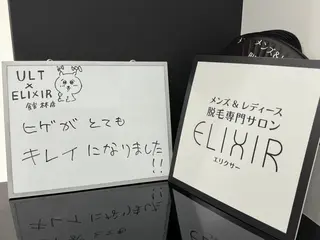 ULT
×
ELIXIR
ヒゲが とても
キレイ になりました!!
メンズ&レディース
脱毛専門サロン
ELIXIR
エリクサー